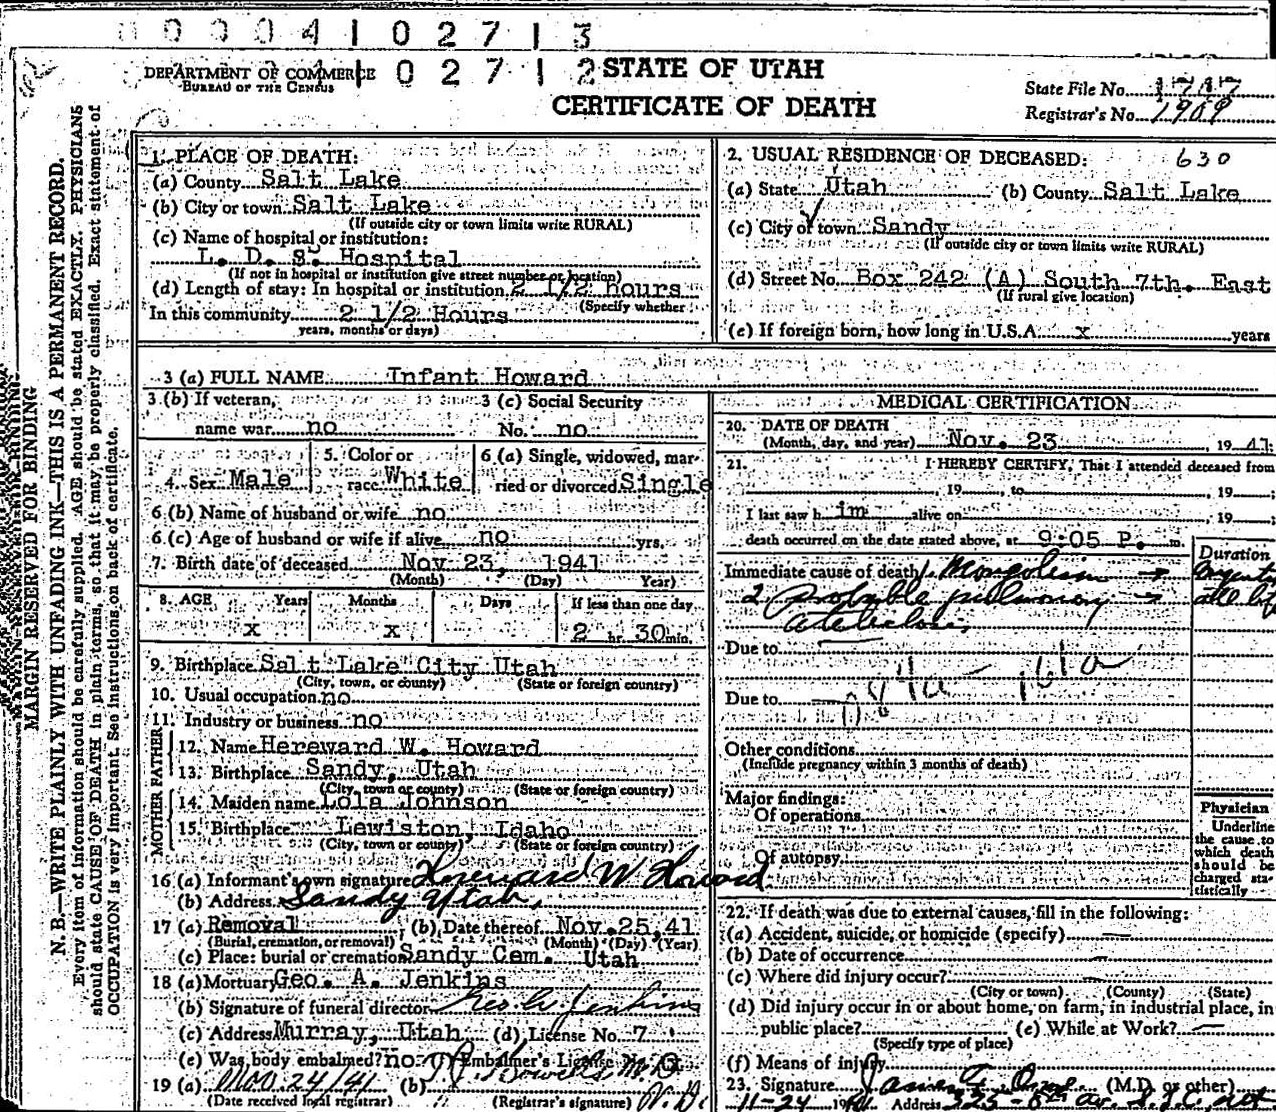 0 0 0 4 1 0 2 7 1 3
DEPARTMENT OF COMMERCE
BUREAU OF THE CENSUS
0 2 7 1 2
STATE OF UTAH
CERTIFICATE OF DEATH
State File No.
Registrar's No. 1909
MARGIN RESERVED FOR BINDING
N. B.—WRITE PLAINLY WITH UNFADING INK—THIS IS A PERMANENT RECORD.
Every item of information should be carefully supplied. AGE should be stated EXACTLY. PHYSICIANS
should state CAUSE OF DEATH in plain terms, so that it may be properly classified. Exact statement of
OCCUPATION is very important. See instructions on back of certificate.
1. PLACE OF DEATH:
(a) County Salt Lake
(b) City or town Salt Lake
(If outside city or town limits write RURAL)
(c) Name of hospital or institution:
L. D. S. Hospital
(If not in hospital or institution give street number or location)
(d) Length of stay: In hospital or institution 2 1/2 hours
(Specify whether
In this community 2 1/2 Hours
years, months or days)
2. USUAL RESIDENCE OF DECEASED: 630
(a) State Utah (b) County Salt Lake
(c) City or town Sandy
(If outside city or town limits write RURAL)
(d) Street No. Box 242 (A) South 7th. East
(If rural give location)
(e) If foreign born, how long in U.S.A. x years
3 (a) FULL NAME Infant Howard
3 (b) If veteran, 3 (c) Social Security
name war no No. no
4. Sex Male 5. Color or race White 6 (a) Single, widowed, married or divorced Single
6 (b) Name of husband or wife no
6 (c) Age of husband or wife if alive no yrs.
7. Birth date of deceased Nov 23, 1941
(Month) (Day) Year)
8. AGE Years Months Days If less than one day
x x 2 hr. 30 min.
9. Birthplace Salt Lake City Utah
(City, town, or county) (State or foreign country)
10. Usual occupation no
11. Industry or business no
MOTHER FATHER
12. Name Hereward W. Howard
13. Birthplace Sandy, Utah
(City, town or county) (State or foreign country)
14. Maiden name Lola Johnson
15. Birthplace Lewiston, Idaho
(City, town or county) (State or foreign country)
16 (a) Informant's own signature Hereward W Howard
(b) Address Sandy Utah.
17 (a) Removal (b) Date thereof Nov. 25, 41
(Burial, cremation, or removal) (Month) (Day) (Year)
(c) Place: burial or cremation Sandy Cem. Utah
18 (a) Mortuary Geo. A. Jenkins
(b) Signature of funeral director Geo A Jenkins
(c) Address Murray, Utah (d) License No. 7
(e) Was body embalmed? no Embalmer's License
19 (a) Nov. 24/41 (b) M. D.
(Date received local registrar) (Registrar's signature)
MEDICAL CERTIFICATION
20. DATE OF DEATH
(Month, day, and year) Nov. 23 19 41
21. I HEREBY CERTIFY, That I attended deceased from
, 19 , to , 19 ;
I last saw h im alive on , 19 ;
death occurred on the date stated above, at 9:05 P. m.
Duration
Immediate cause of death 1. Mongolism →
2 Probable pulmonary → all life
atelectasis
Due to
Due to 161a
Other conditions
(Include pregnancy within 3 months of death)
Major findings:
Of operations
Of autopsy
Physician
Underline
the cause to
which death
should be
charged sta-
tistically
22. If death was due to external causes, fill in the following:
(a) Accident, suicide, or homicide (specify) —
(b) Date of occurrence —
(c) Where did injury occur? —
(City or town) (County) (State)
(d) Did injury occur in or about home, on farm, in industrial place, in
public place? (e) While at Work? —
(Specify type of place)
(f) Means of injury
23. Signature James (M.D. or other)
11-24 1941 Address 325 - 8th av. S.L.C.